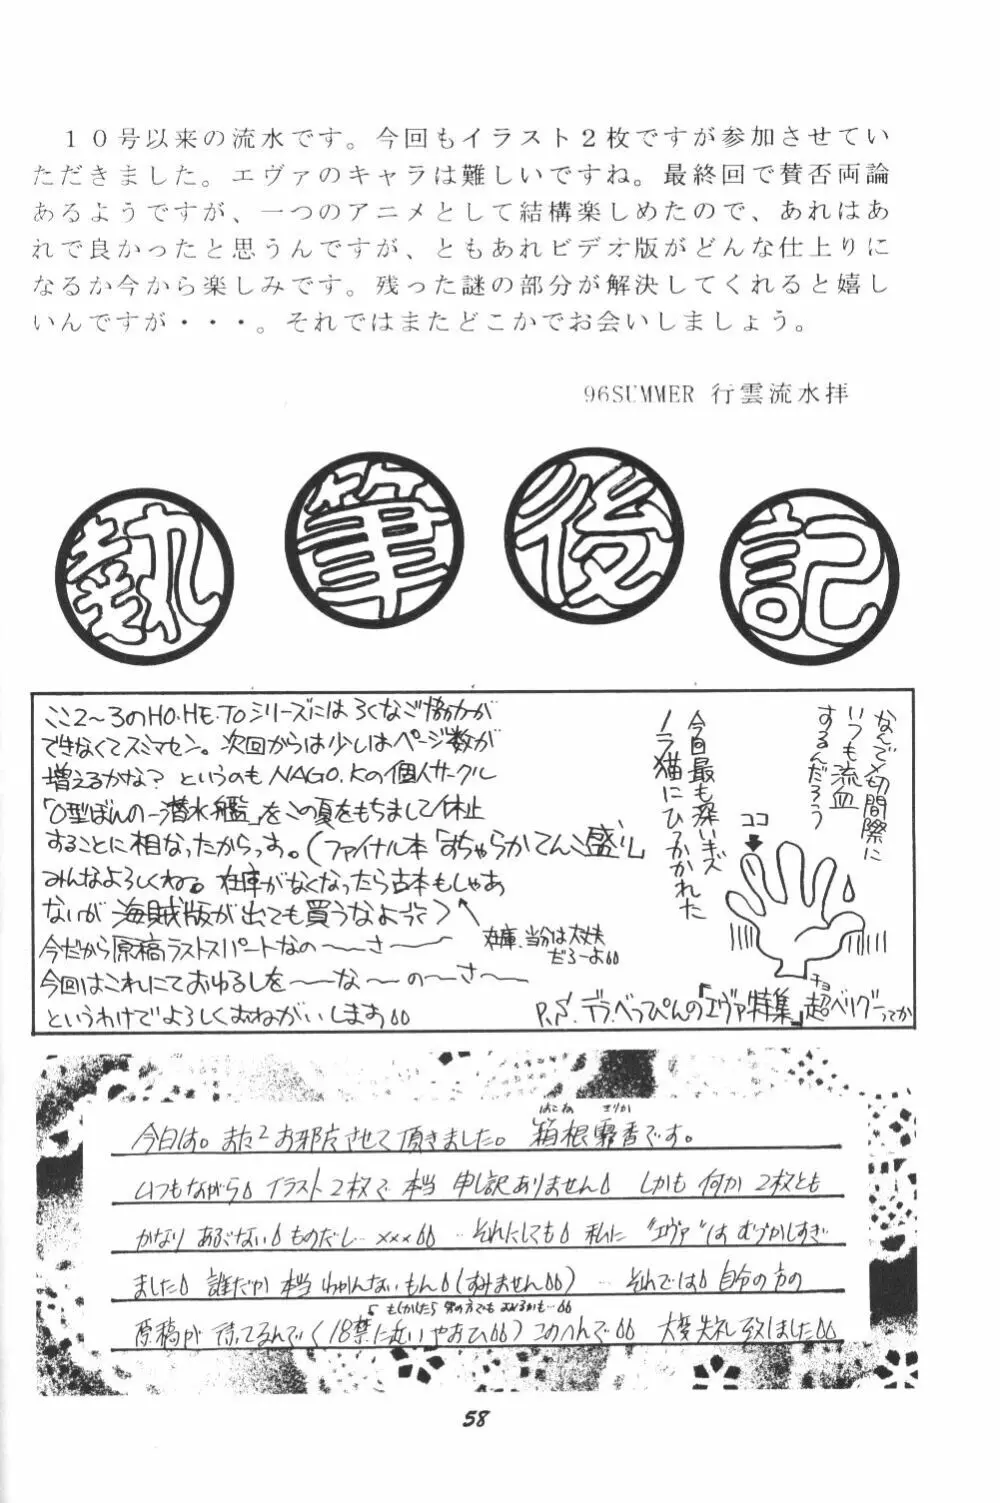 １０号以来の流水です。今回もイラスト２枚ですが参加させてい
ただきました。エヴァのキャラは難しいですね。最終回で賛否両論
あるようですが、一つのアニメとして結構楽しめたので、あれはあ
れで良かったと思うんですが、ともあれビデオ版がどんな仕上りに
なるか今から楽しみです。残った謎の部分が解決してくれると嬉し
いんですが・・・。それではまたどこかでお会いしましょう。
96SUMMER 行雲流水拝
執筆後記
ここ2〜3のHO・HE・TOシリーズにはろくなご協力が
できなくてスミマセン。次回からは少しはページ数が
増えるかな? というのもNAGO.Kの個人サークル
「O型ぼんの一潜水艦」をこの夏をもちまして休止
することに相なったからっす。(ファイナル本「おちゃらかてんこ盛り」
みんなよろしくねo 在庫がなくなったら古本もしゃあ
ないが海賊版が出ても買うなよって)
在庫、当分は大丈夫
だろーよ
今だから原稿ラストスパートなの〜〜さ〜〜
今回はこれにておゆるしを〜〜な〜〜の〜さ〜〜
というわけでよろしくおねがいします
なんで〆切間際に
いつも流血
するんだろう
ココ
今回最も深いキズ
ノラ猫にひっかかれた
P.S. デラべっぴんの「エヴァ特集」超ベリグーってか
チョ
はこね えりか
今日は。また2お邪魔させて頂きました。箱根 香です。
いつもながら イラスト2枚で 本当 申し訳ありません しかも 何か 2枚とも
かなり あぶない ものだし…×××  …それにしても 私に "エヴァ"は むづかしすぎ
ました 誰だか 本当 わかんないもん(すみません) …それでは 自分の方の
もしかしたら 男の方でも おこるかも…
原稿が 待ってるんで(18禁に近いやおひ)このへんで 大変失礼致しました
58